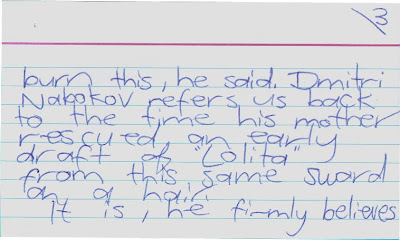 \3
burn this, he said. Dmitri
Nabokov refers us back
to the time his mother
rescued, an early
draft of "Lolita"
from this, same sword
on a hair.
It is, he firmly believes